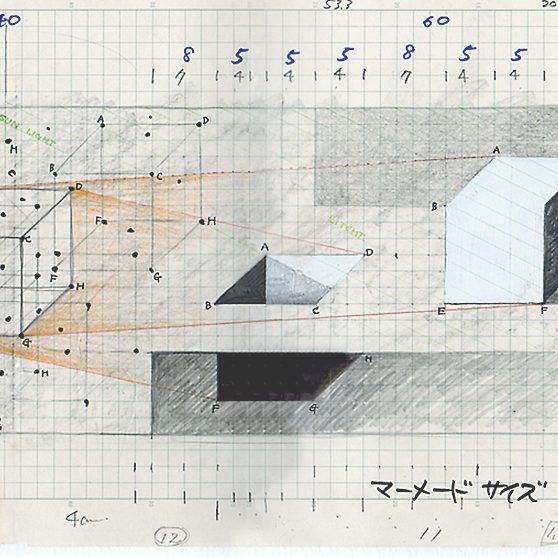 53.3
60
8 5 5 5 8 5 5
7 4 4 4 7 4 4
SUN LIGHT
A D
H
B C
D
A
F H
B
C
LIGHT
F G
A D
H
B C
E F
G
H
H
F G
マーメード サイズ
4cm
12 11